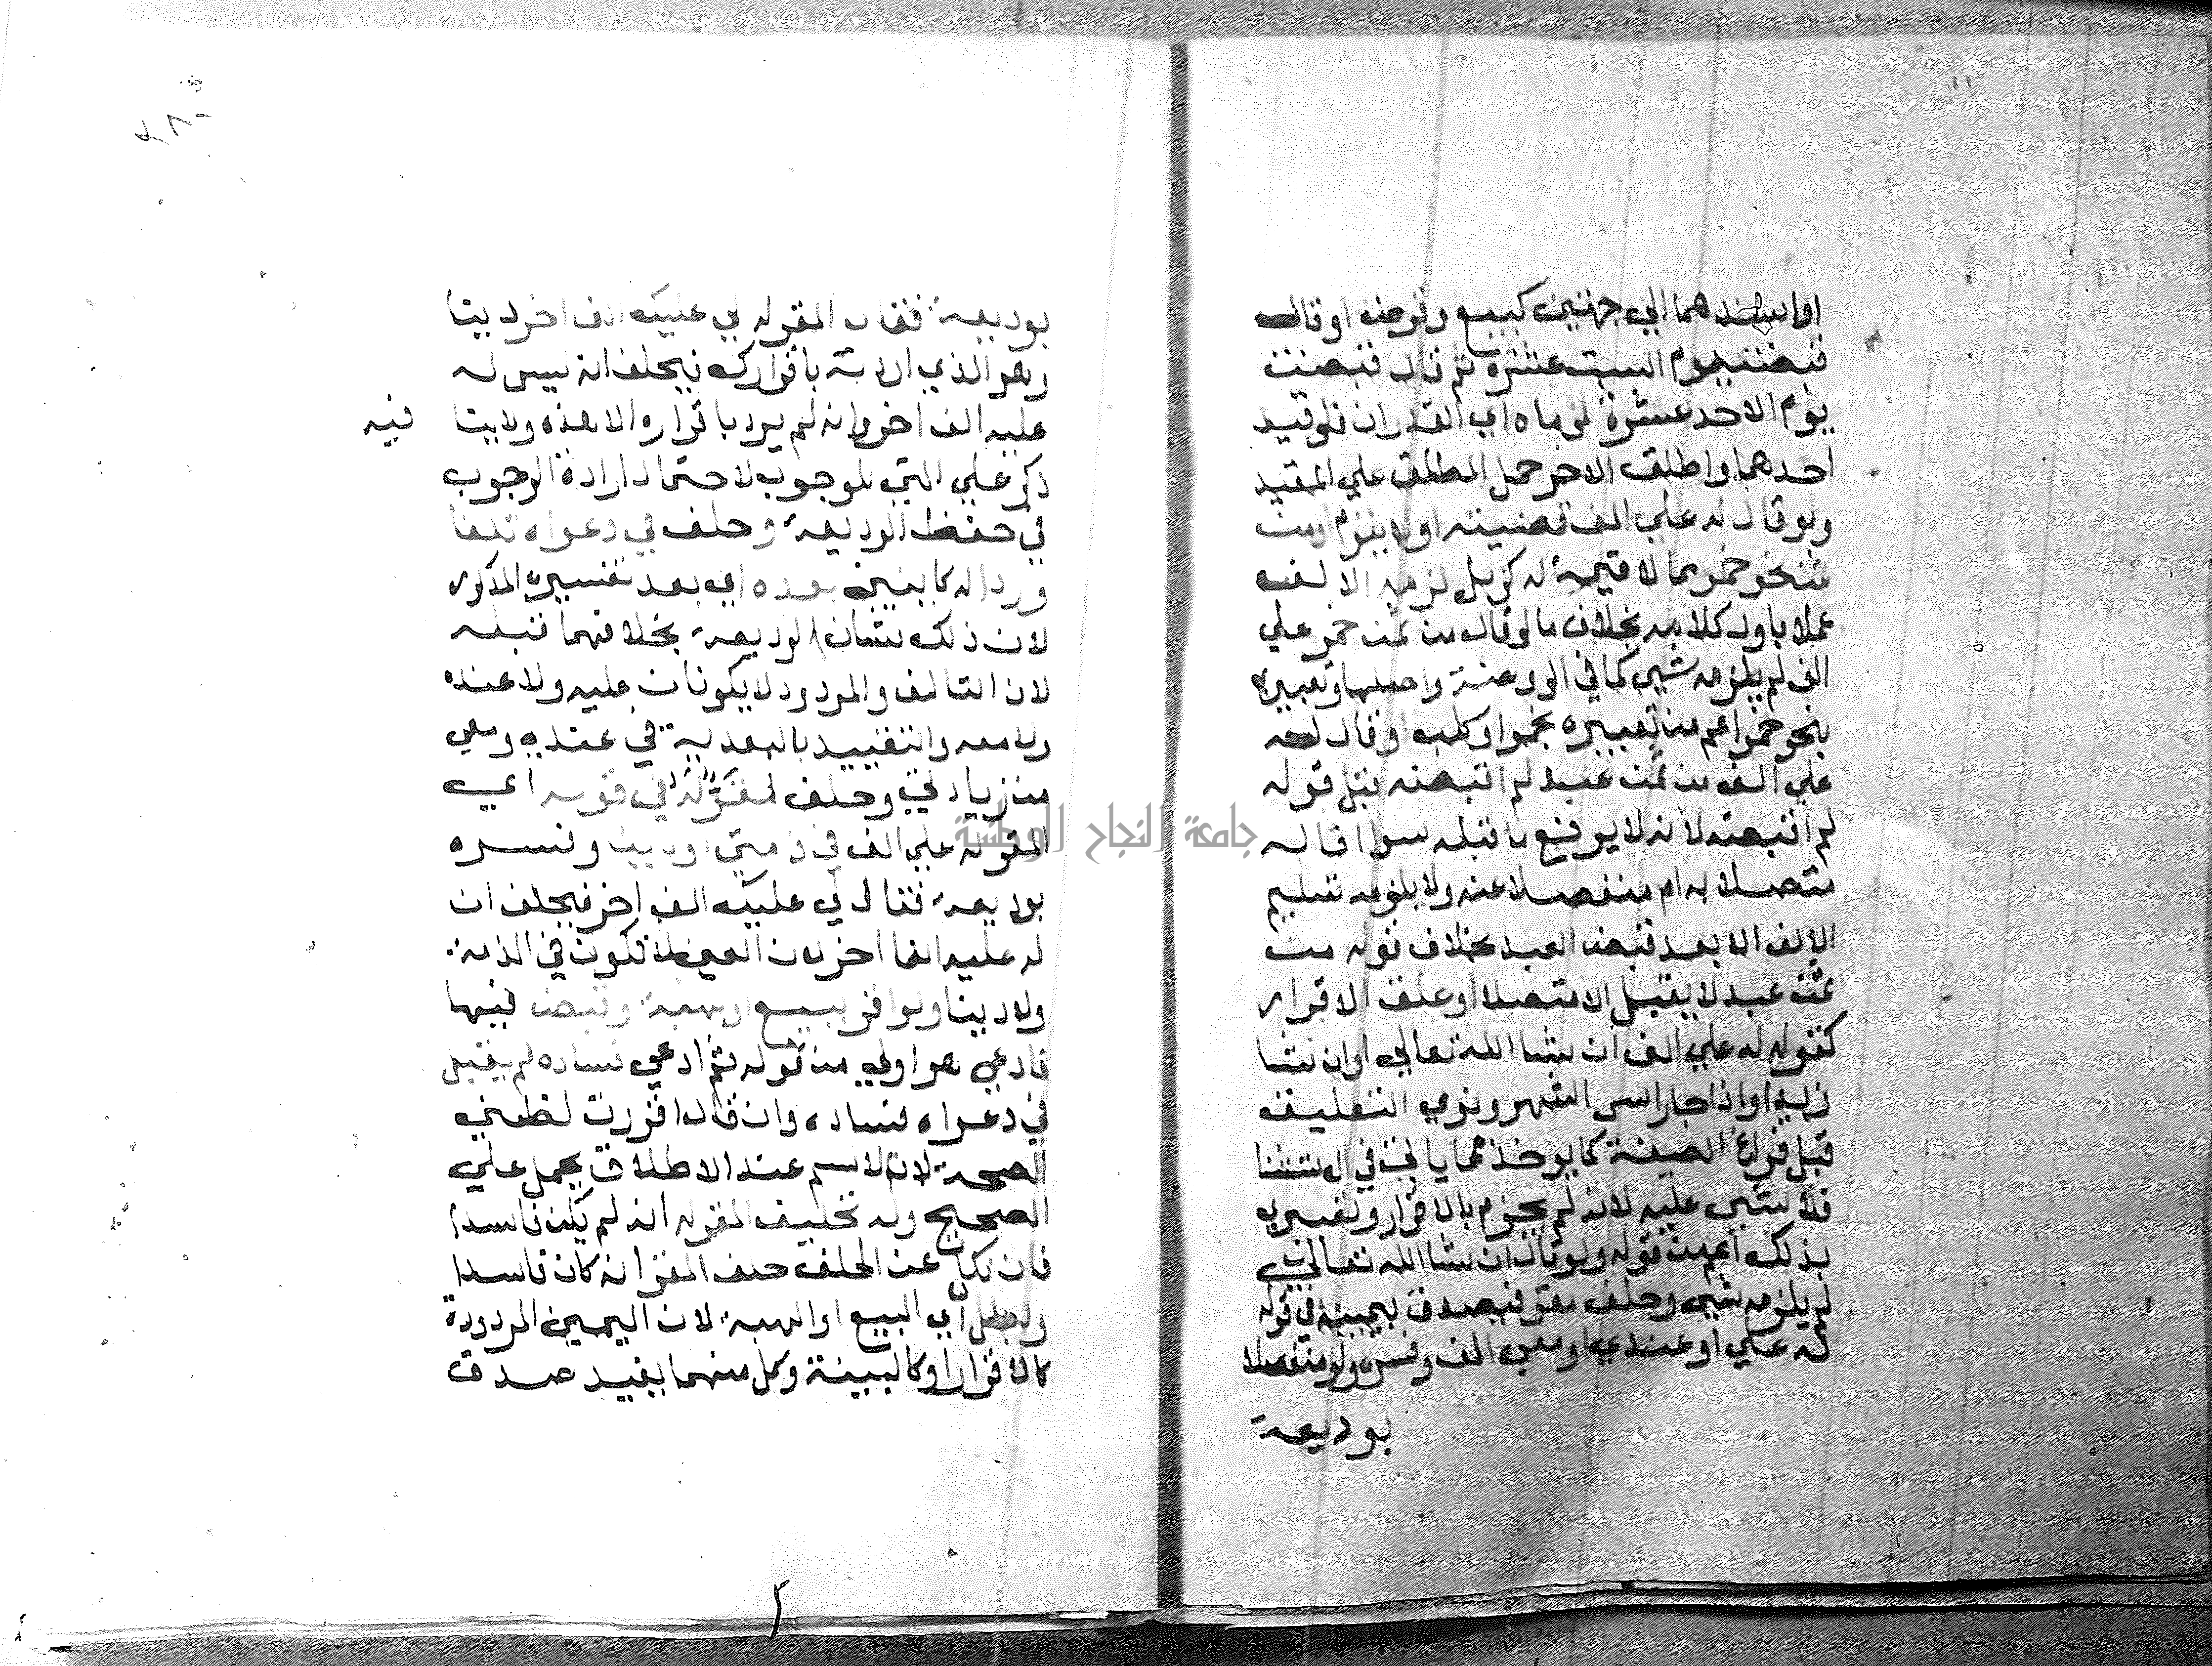 او اسندهما الي جهتين كبيع وقرض او قال
قبضت يوم السبت عشرة ثم قال قبضت
يوم الاحد عشرة لزماه اي القدران فلو قيد
احدهما واطلق الاخر حمل المطلق علي المقيد
ولو قال له علي الف قضيته او لا يلزم او من
ثمن نحو خمر مما لا قيمة له كزبل لزمه الالف
عملا باول كلامه بخلاف ما لو قال من ثمن خمر علي
الف لم يلزمه شيي كما في الروضة واصلها وتعبيره
بنحو خمر اعم من تعبيره بخمر او كلب او قال له
علي الف من ثمن عبد لم اقبضه قبل قوله
لم اقبضه لانه لا يرفع ما قبله سوا قاله
متصلا به ام منفصلا عنه ولا يلزمه تسليم
الالف الا بعد قبض العبد بخلاف قوله من
ثمن عبد لا يقبل الا متصلا او علق الاقرار
كقوله له علي الف ان شا الله تعالي او ان شا
زيد او اذا جا راس الشهر ونوي التعليق
قبل فراغ الصيغة كما يوخذ مما ياتي في الاستثنا
فلا شيي عليه لانه لم يجزم بالاقرار وتعبيري
بذلك اعم من قوله ولو قال ان شا الله تعالي
لم يلزمه شيي وحلف مقر فيصدق بيمينه في قوله
له علي او عندي او معي الف وفسره ولو منفصلا
بوديعة
بوديعة فقال المقر له لي عليك الف اخر دينا
وهو الذي اردته باقرارك فيحلف انه ليس له
عليه الف اخر وانه لم يرد باقراره الا هذه ولا ينا فيه
ذكر علي التي للوجوب لاحتمال ارادة الوجوب
في حفظ الوديعة وحلف في دعواه تلفا
وردا له كاينين بعده اي بعد تفسيره المذكور
لان ذلك شان الوديعة بخلافهما قبله
لان التالف والمردود لا يكونان عليه ولا عنده
ولا معه والتقييد بالبعدية في عندي ومعي
من زيادتي وحلف لمقر له في قوله اي
المقر له علي الف في ذمتي او دينا وفسره
بوديعة فقال لي عليك الف اخر فيحلف ان
له عليه الفا اخر لان العين لا تكون في الذمة
ولا دينا ولو اقر ببيع او هبة وقبض فيها
فادعي هو اولي من قوله ثم ادعي فساده لم يقبل
في دعواه فساده وان قال اقررت لظني
الصحة لان الاسم عند الاطلاق يحمل علي
الصحيح وله تحليف المقر له انه لم يكن فاسدا
فان نكل عن الحلف حلف المقر انه كان فاسدا
وبطل اي البيع او الهبة لان اليمين المردودة
كالاقرار او كالبينة وكل منهما يفيد صدق
جامعة النجاح الوطنية